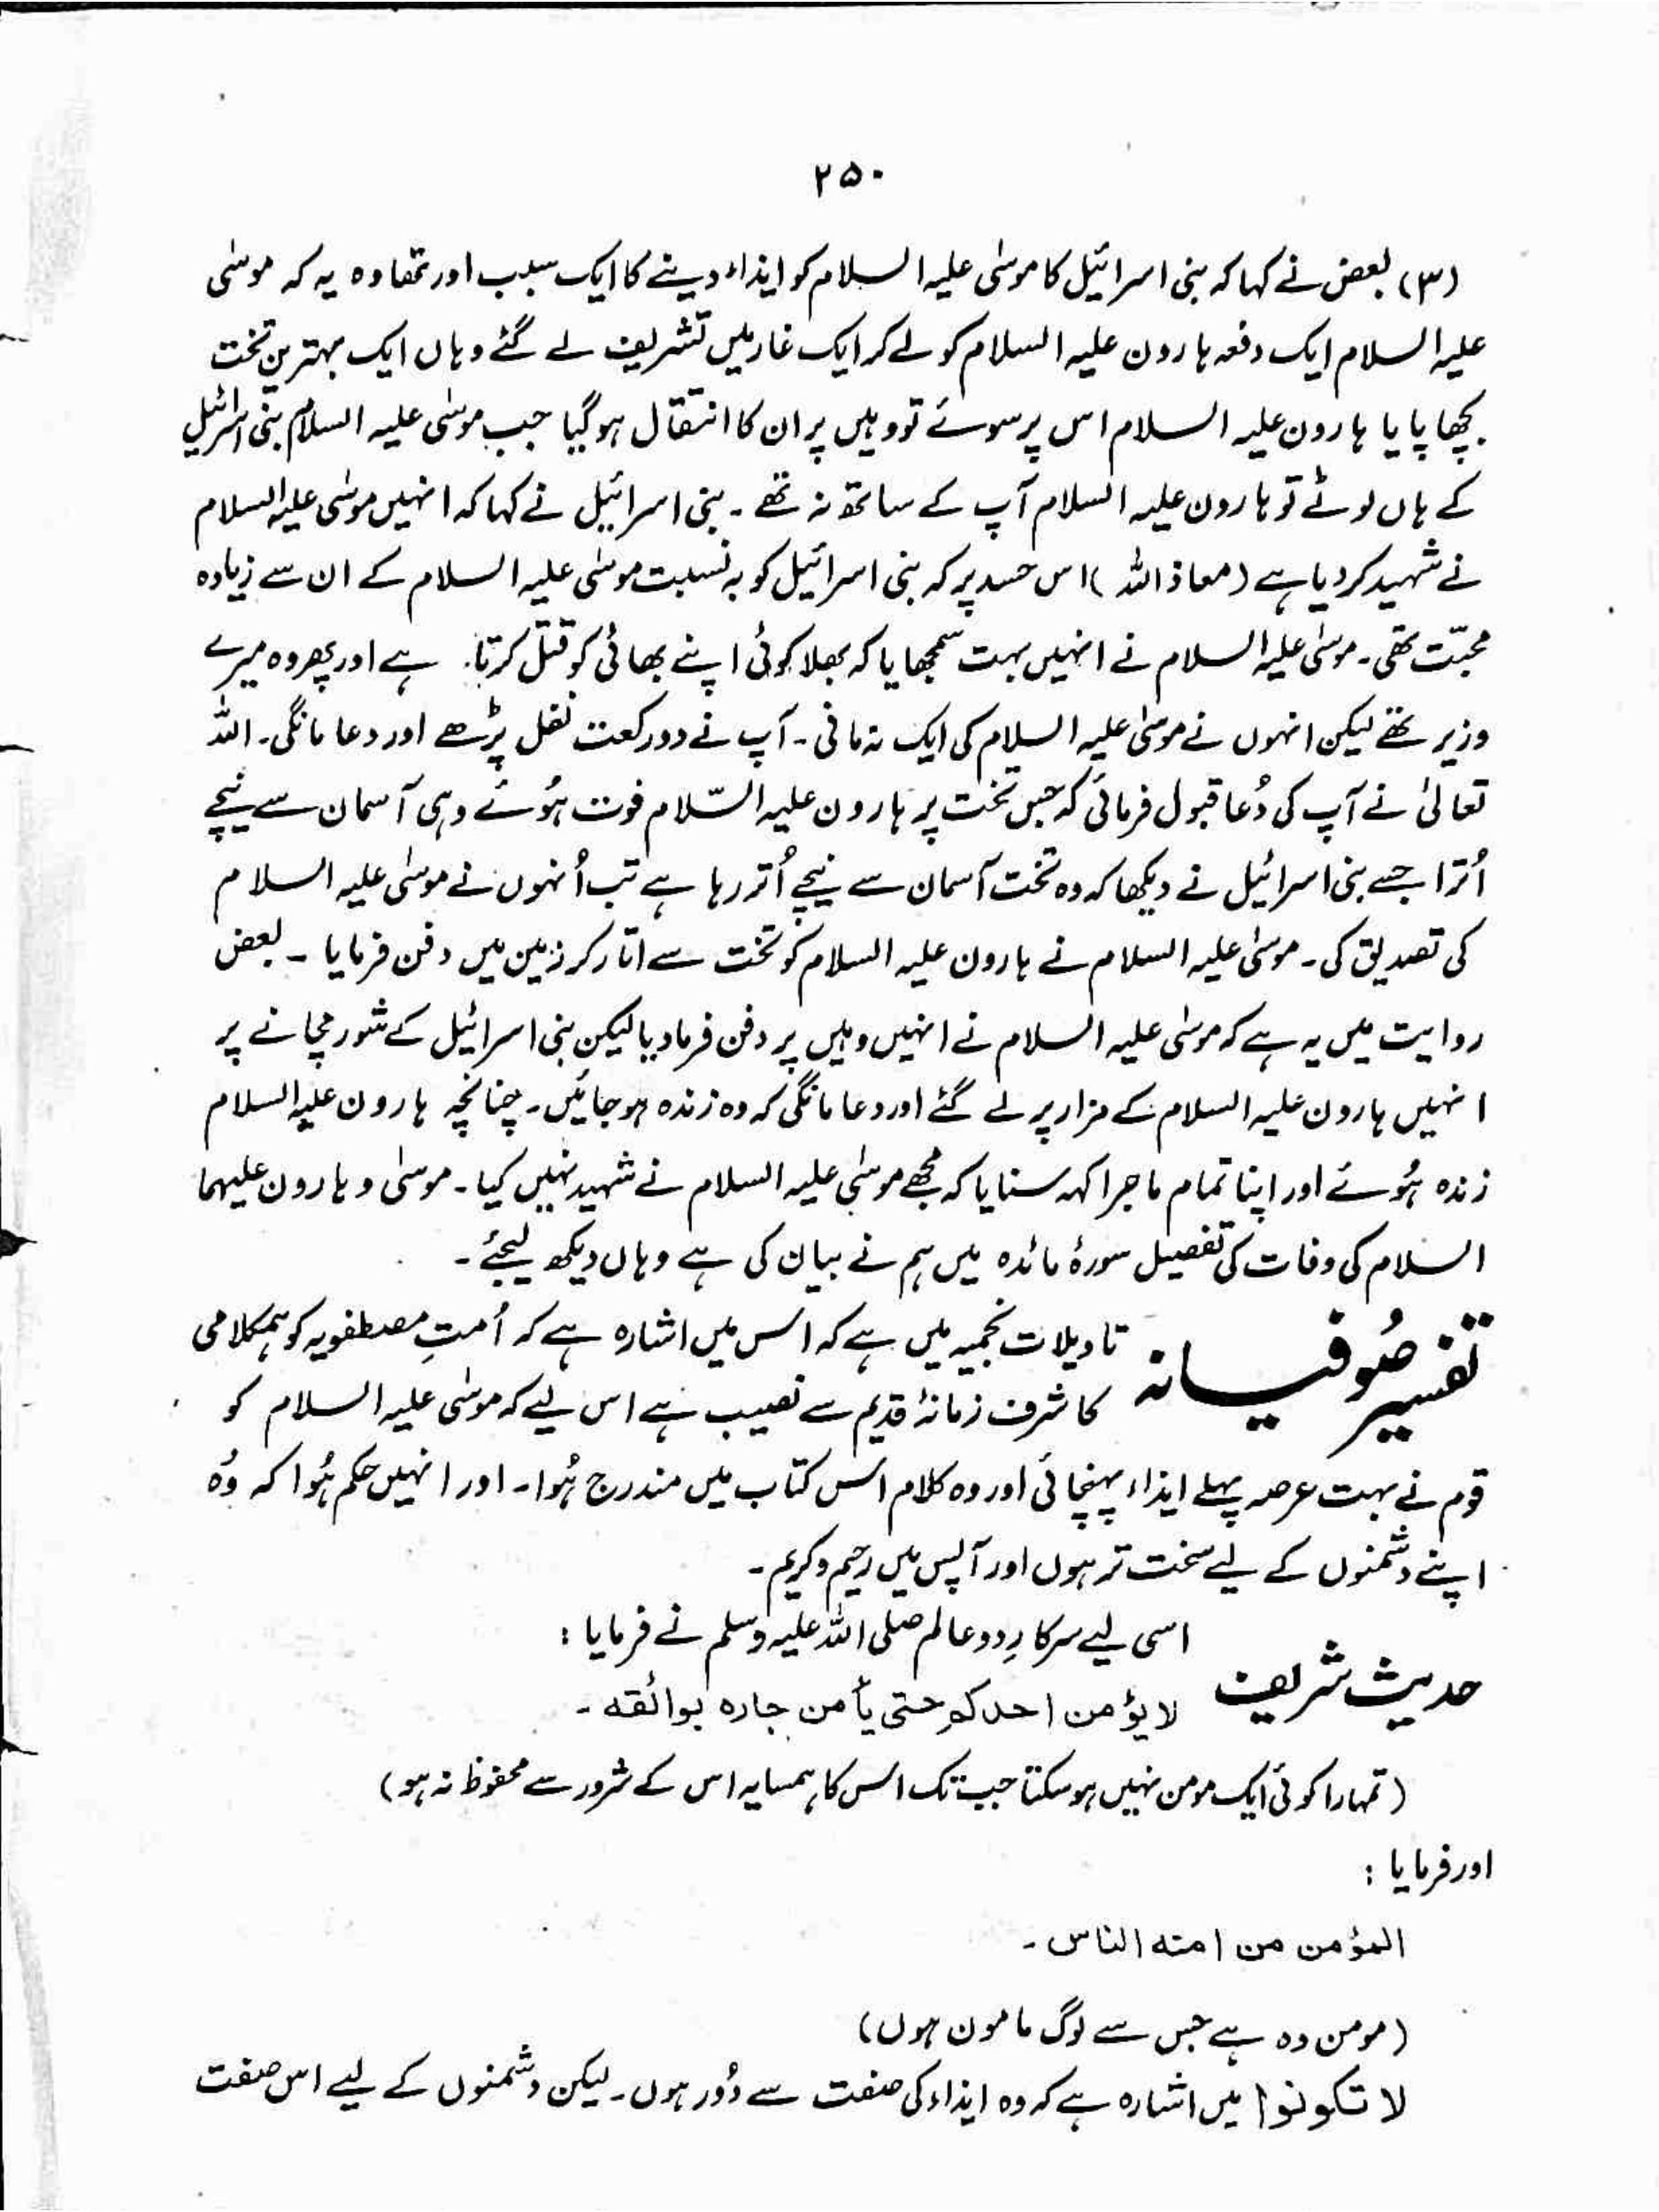 ۲۵۰
(۳) بعض نے کہا کہ بنی اسرائیل کا موسٰی علیہ السلام کو ایذاء دینے کا ایک سبب اور تھا وہ یہ کہ موسٰی
علیہ السلام ایک دفعہ ہارون علیہ السلام کو لے کر ایک غار میں تشریف لے گئے وہاں ایک بہترین تخت
بچھا پایا ہارون علیہ السلام اس پر سوئے تو وہیں پر ان کا انتقال ہو گیا جب موسٰی علیہ السلام بنی اسرائیل
کے ہاں لوٹے تو ہارون علیہ السلام آپ کے ساتھ نہ تھے ۔ بنی اسرائیل نے کہا کہ انہیں موسٰی علیہ السلام
نے شہید کر دیا ہے (معاذ اللہ) اس حسد پر کہ بنی اسرائیل کو بہ نسبت موسٰی علیہ السلام کے ان سے زیادہ
محبّت تھی۔ موسٰی علیہ السلام نے انہیں بہت سمجھایا کہ بھلا کوئی اپنے بھائی کو قتل کرتا ہے اور پھر وہ میرے
وزیر تھے لیکن انہوں نے موسٰی علیہ السلام کی ایک نہ مانی ۔ آپ نے دو رکعت نفل پڑھے اور دعا مانگی۔ اللہ
تعالیٰ نے آپ کی دُعا قبول فرمائی کہ جس تخت پر ہارون علیہ السّلام فوت ہُوئے وہی آسمان سے نیچے
اُترا جسے بنی اسرائیل نے دیکھا کہ وہ تخت آسمان سے نیچے اُتر رہا ہے تب اُنہوں نے موسٰی علیہ السلام
کی تصدیق کی۔ موسٰی علیہ السلام نے ہارون علیہ السلام کو تخت سے اتار کر زمین میں دفن فرمایا ۔ بعض
روایت میں یہ ہے کہ موسٰی علیہ السلام نے انہیں وہیں پر دفن فرما دیا لیکن بنی اسرائیل کے شور مچانے پر
انہیں ہارون علیہ السلام کے مزار پر لے گئے اور دعا مانگی کہ وہ زندہ ہو جائیں۔ چنانچہ ہارون علیہ السلام
زندہ ہُوئے اور اپنا تمام ماجرا کہہ سنایا کہ مجھے موسٰی علیہ السلام نے شہید نہیں کیا۔ موسٰی و ہارون علیہما
السلام کی وفات کی تفصیل سورۂ مائدہ میں ہم نے بیان کی ہے وہاں دیکھ لیجئے ۔
تفسیر صُوفیانہ تاویلات نجمیہ میں ہے کہ اس میں اشارہ ہے کہ اُمتِ مصطفویہ کو ہمکلامی
کا شرف زمانۂ قدیم سے نصیب ہے اس لیے کہ موسٰی علیہ السلام کو
قوم نے بہت عرصہ پہلے ایذاء پہنچائی اور وہ کلام اس کتاب میں مندرج ہُوا۔ اور انہیں حکم ہُوا کہ وُہ
اپنے دشمنوں کے لیے سخت تر ہوں اور آپس میں رحیم و کریم۔
حدیث شریف اسی لیے سرکارِ دو عالم صلی اللہ علیہ وسلم نے فرمایا :
لا یؤمن احدکم حتی یأمن جارہ بوائقہ ۔
(تمہارا کوئی ایک مومن نہیں ہو سکتا جب تک اس کا ہمسایہ اس کے شرور سے محفوظ نہ ہو)
اور فرمایا :
المؤمن من امنہ الناس ۔
(مومن وہ ہے جس سے لوگ مامون ہوں)
لا تکونوا میں اشارہ ہے کہ وہ ایذاء کی صفت سے دُور ہوں۔ لیکن دشمنوں کے لیے اس صفت